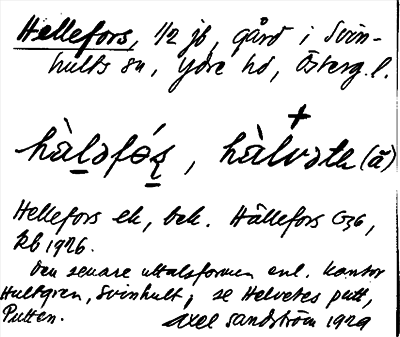 Hellefors, 1/2 jb, gård i Svin-
hults sn, Ydre hd, Österg. l.
hàləfo̱ʂ, hàlvətn (ă)
Hellefors ek, bek. Hällefors G36,
kb 1926.
Den senare uttalsformen enl. kantor
Hultgren, Svinhult; se Helvetes putt,
Putten. Axel Sandström 1929